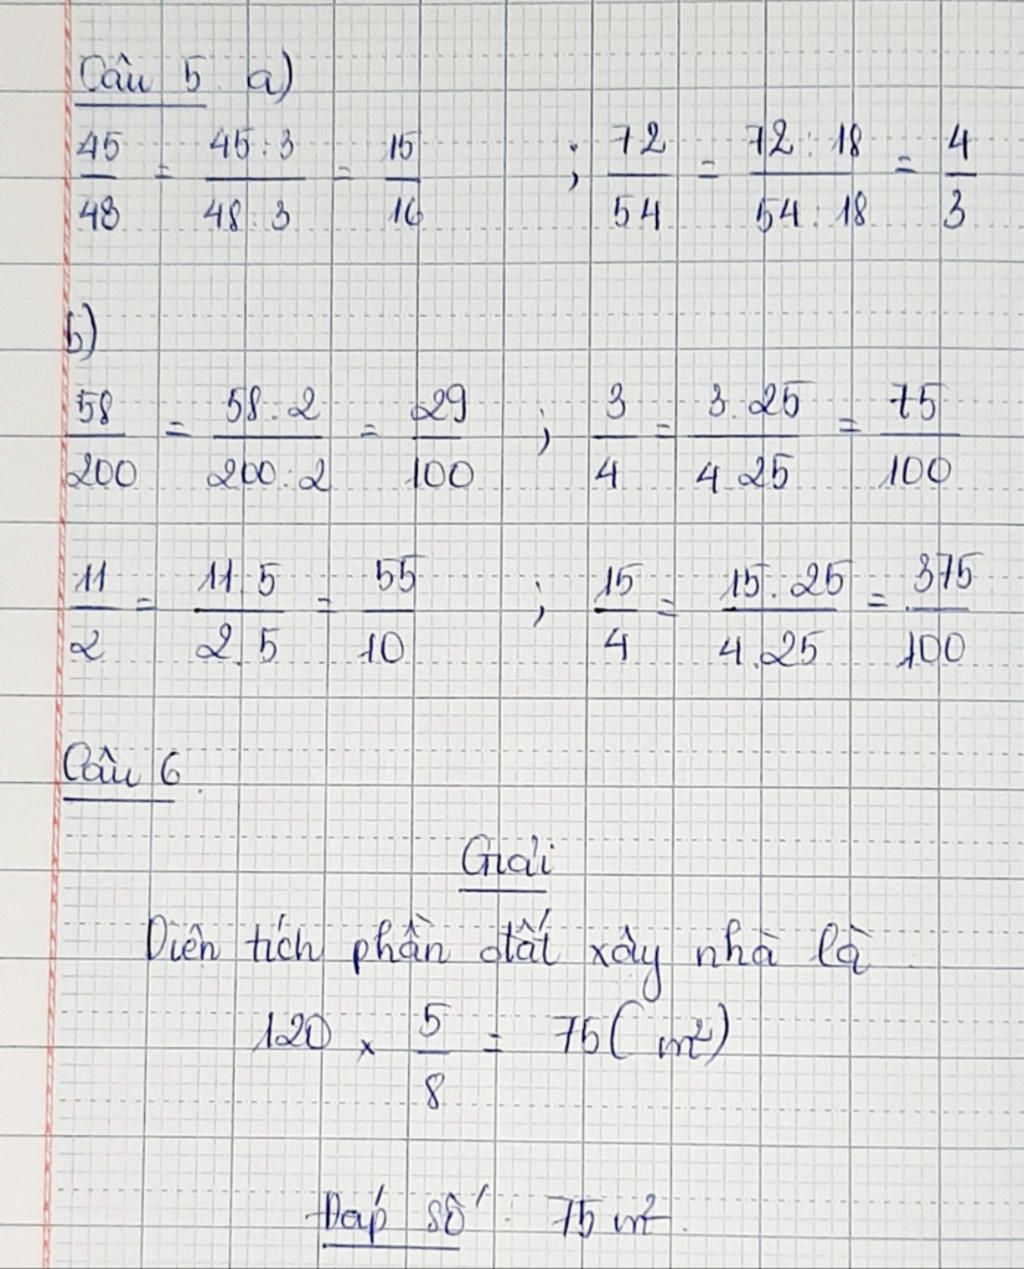 Câu 5 a)
45/48 = 45:3/48:3 = 15/16 ; 72/54 = 72:18/54:18 = 4/3
b)
58/200 = 58:2/200:2 = 29/100 ; 3/4 = 3.25/4.25 = 75/100
11/2 = 11.5/2.5 = 55/10 ; 15/4 = 15.25/4.25 = 375/100
Câu 6.
Giải
Diện tích phần đất xây nhà là
120 × 5/8 = 75 (m²)
Đáp số: 75 m².